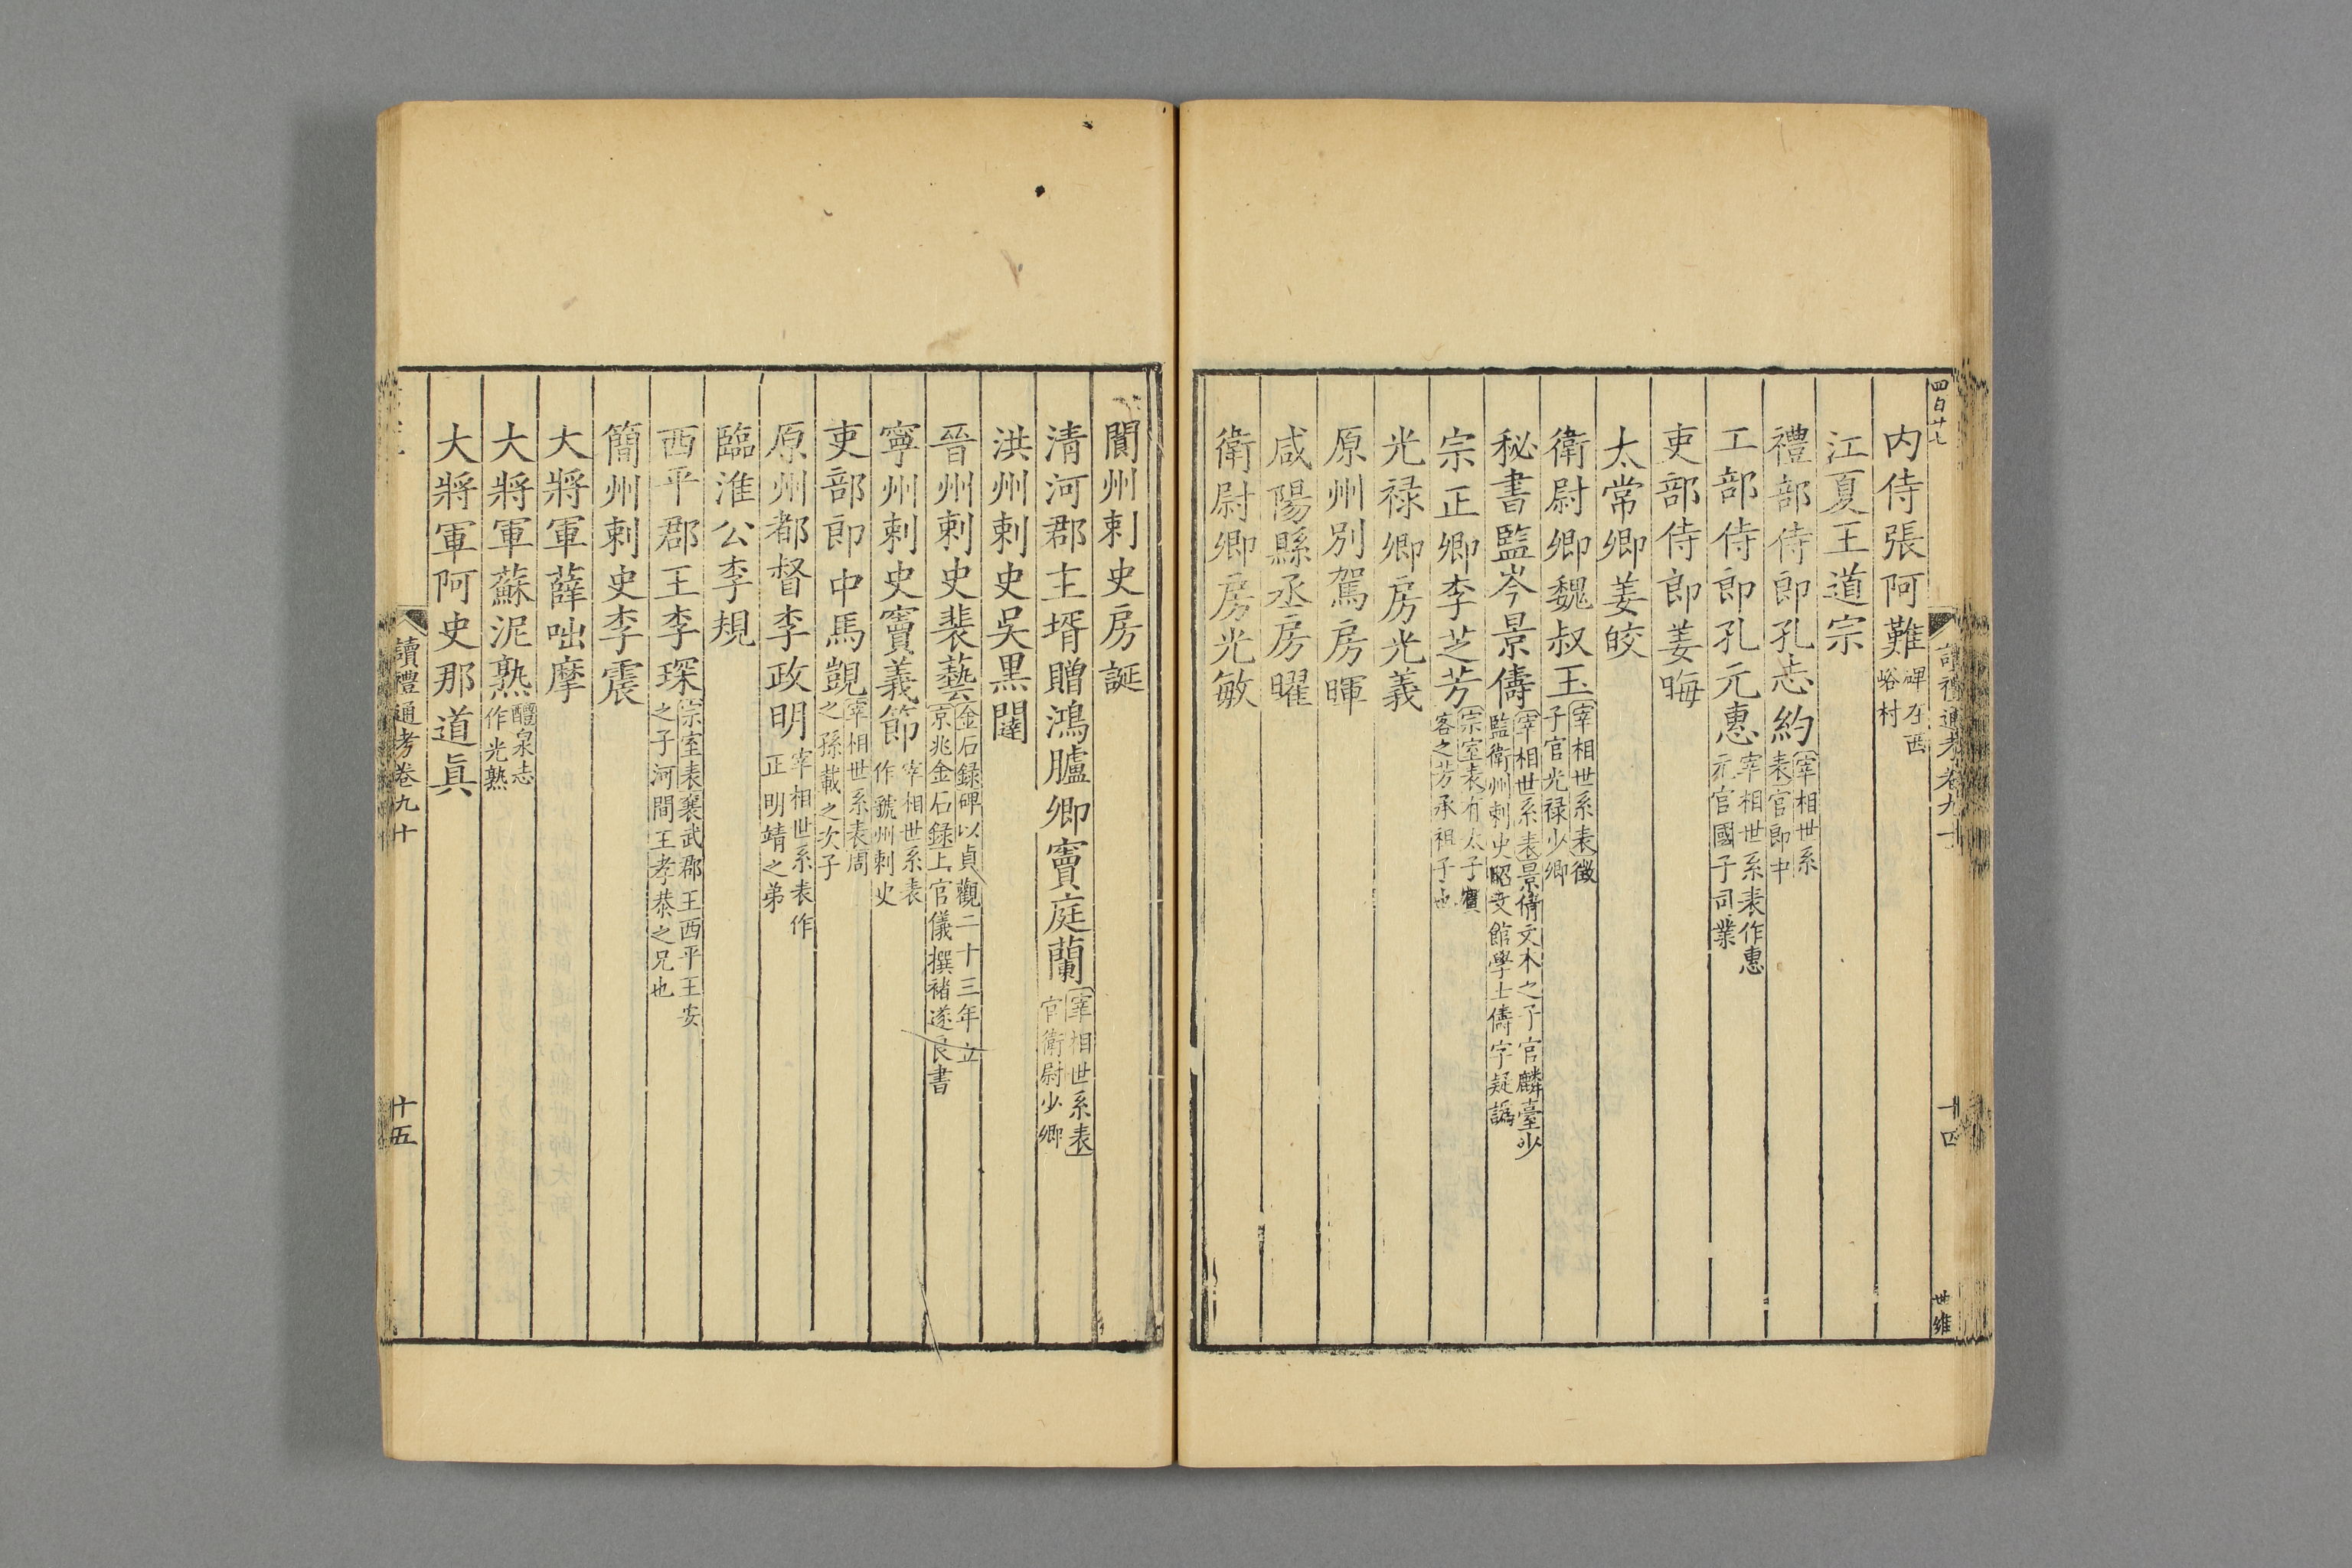 四百廿七
讀禮通考卷九十
十四
世維
内侍張阿難碑在西峪村
江夏王道宗
禮部侍郎孔志約宰相世系表官郎中
工部侍郎孔元惠宰相世系表作惠元官國子司業
吏部侍郎姜晦
太常卿姜皎
衛尉卿魏叔玉宰相世系表徵子官光禄少卿
秘書監岑景儔宰相世系表景倩文本之子官麟臺少監衛州刺史昭文館學士儔字疑譌
宗正卿李芝芳宗室表有太子賓客之芳承祖子也
光禄卿房光義
原州別駕房暉
咸陽縣丞房曜
衛尉卿房光敏
閬州刺史房誕
清河郡主壻贈鴻臚卿竇庭蘭宰相世系表官衛尉少卿
洪州刺史吳黑闥
晉州刺史裴藝金石録碑以貞觀二十三年立京兆金石録上官儀撰褚遂良書
寧州刺史竇義節宰相世系表作虢州刺史
吏部郎中馬覬宰相世系表周之孫載之次子
原州都督李政明宰相世系表作正明靖之弟
臨淮公李規
西平郡王李琛宗室表襄武郡王西平王安之子河間王孝恭之兄也
簡州刺史李震
大將軍薛咄摩
大將軍蘇泥熟醴泉志作光熟
大將軍阿史那道眞
讀禮通考卷九十
十五